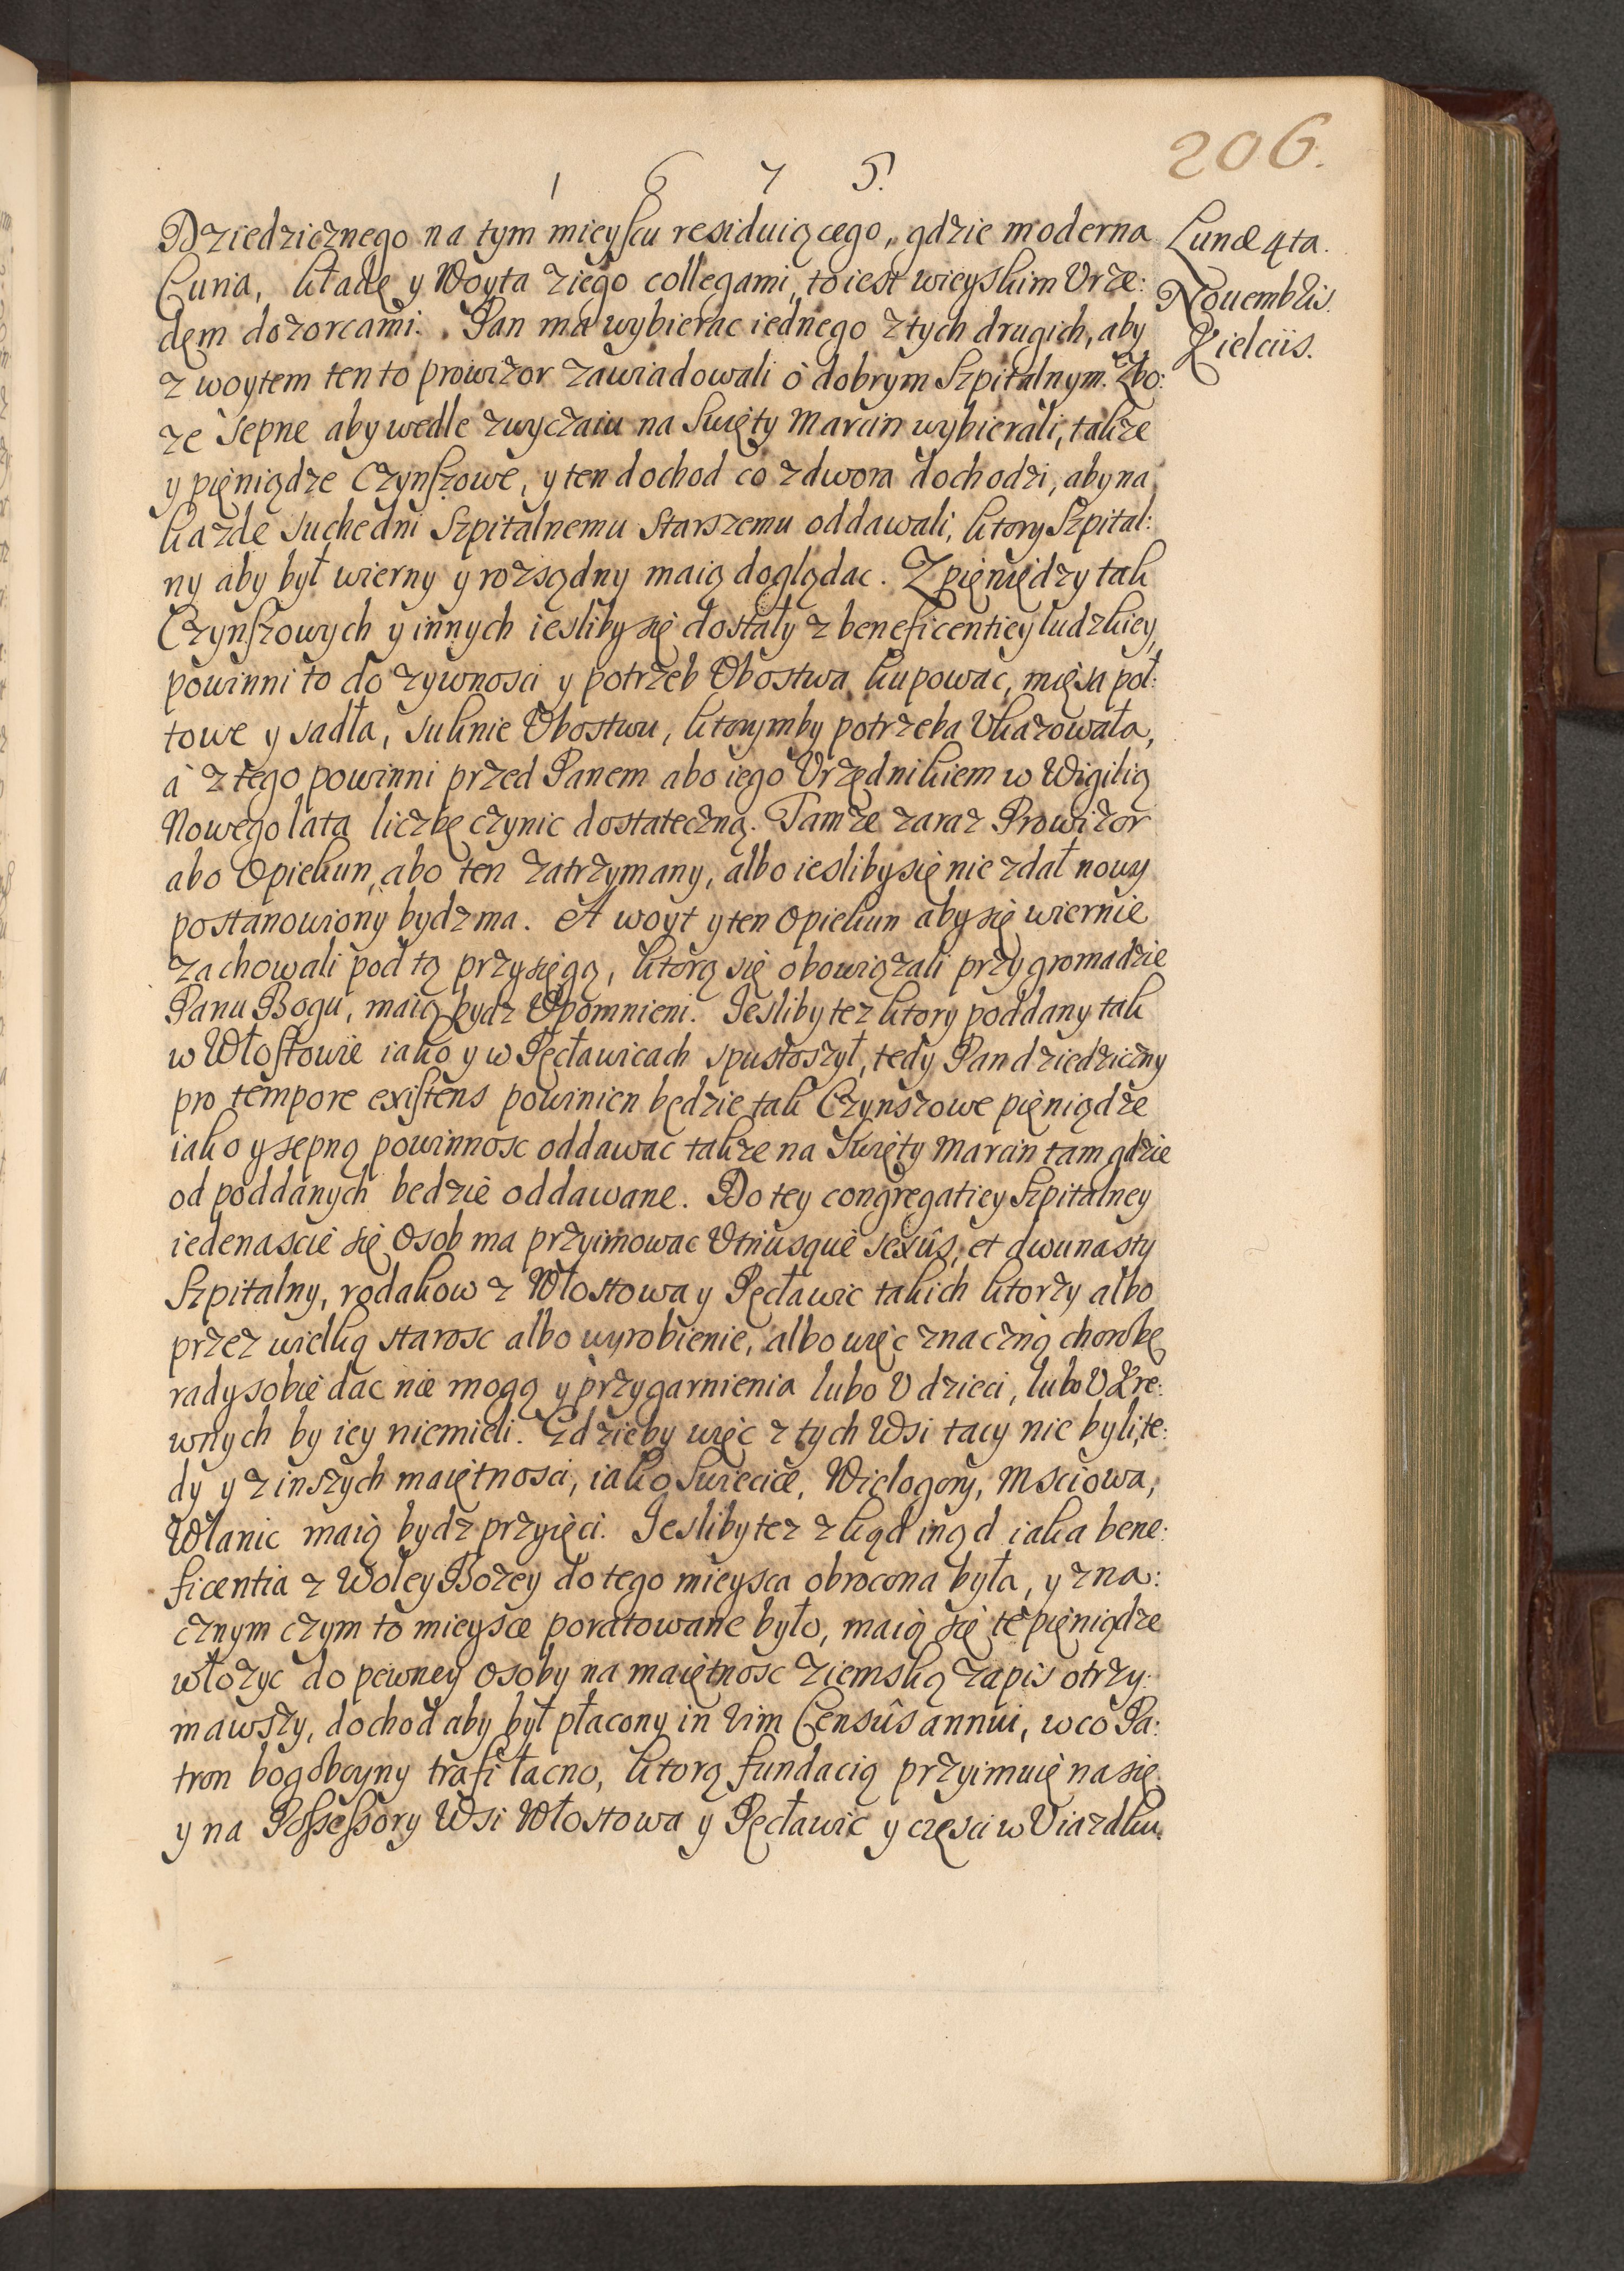 206.
1 6 7 5.
Dziedzicznego na tym mieyscu residuiącego, gdzie moderna
Curia, kładę y Woyta z iego collegami, to iest wieyskim Vrzę:
dem dozorcami. Pan ma wybierac iednego z tych drugich, aby
z woytem ten to prowizor zawiadowali o dobrym Szpitalnym. Zbo:
ze sepne aby wedle zwyczaiu na Swięty Marcin wybierali, takze
y pieniądze Czynszowe, y ten dochod co z dwora dochodzi, aby na
kazde suchedni Szpitalnemu Starszemu oddawali, ktory Szpital:
ny aby był wierny y rozsądny maią doglądac. Z pieniędzy tak
Czynszowych y innych iesliby się dostały z beneficentiey ludzkiey,
powinni to do zywnosci y potrzeb Vbostwa kupowac, mięsa poł:
towe y sadła, suknie Vbostwu, ktorymby potrzeba Vkazowała,
à z tego powinni przed Panem abo iego Vrzędnikiem w Wigilią
Nowego lata liczbę czynic dostateczną. Tamze zaraz Prowizor
abo Opiekun, abo ten zatrzymany, albo iesliby się nie zdał nowy
postanowiony bydz ma. A woyt y ten Opiekun aby się wiernie
zachowali pod tą przysięgą, ktorą się obowiązali przy gromadzie
Panu Bogu, maią bydz Vpomnieni. Jesliby tez ktory poddany tak
w Włostowie iako y w Pęcławicach spustoszył, tedy Pan dziedziczny
pro tempore existens powinien będzie tak Czynszowe pieniądze
iako y sepną powinnosc oddawac takze na Swięty Marcin tam gdzie
od poddanych bedzie oddawane. Do tey congregatiey Szpitalney
iedenascie się Osob ma przyimowac Vtriusque sexûs, et dwunasty
Szpitalny, rodakow z Włostowa y Pęcławic takich ktorzy albo
przez wielką starosc albo wyrobienie, albo więc znaczną chorobę
rady sobie dac nie mogą y przygarnienia lubo V dzieci, lubo V Kre:
wnych by iey niemieli. Gdzieby więc z tych Wsi tacy nie byli, te:
dy y z inszych maiętnosci, iako Swiecice, Wielogory, Msciowa,
Wlanic maią bydz przyięci. Jesliby tez z kąd inąd iaka bene:
ficentia z Woley Bozey do tego mieysca obrocona była, y zna:
cznym czym to mieysce poratowane było, maią się te pieniądze
włozyc do pewney osoby na maiętnosc ziemską zapis otrzy:
mawszy, dochod aby był płacony in vim Censûs annui, w co Pa:
tron bogoboyny trafi łacno, ktorą fundacią przyimuię na się
y na Possessory Wsi Włostowa y Pęcławic y częsci w Viazdku.
Lunæ 4ta.
Nouembris.
Kielciis.